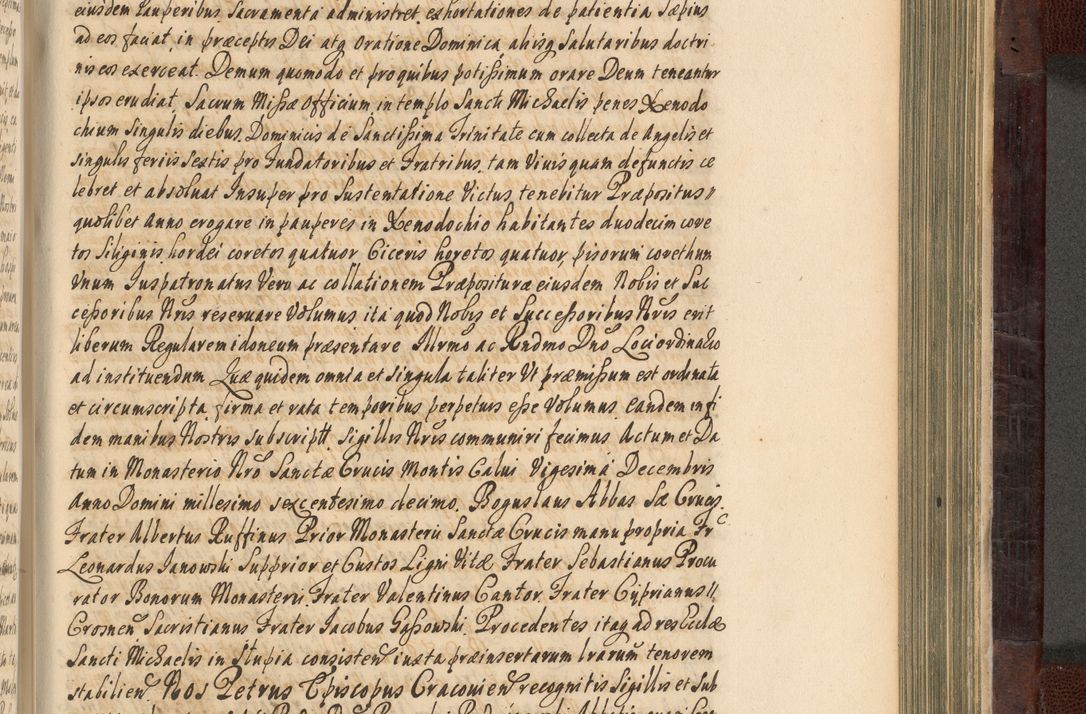 eiusdem Pauperibus Sacramenta administret, exhortationes de patientia Sæpius
ad eos faciat in præceptis Dei atq Oratione Dominica alijsq Salutaribus doctri
nis eos exerceat. Demum quomodo et pro quibus potissimum orare Deum teneantur
ipsos erudiat, Sacrum Missæ Officium in templo Sancti Michaelis penes Xenodo
chium Singulis diebus Dominicis de Sanctissima Trinitate cum collecta de Angelis et
singulis feriis Sextis pro Fundatoribus et Fratribus tam Vivis quam defunctis ce
lebret et absoluat Insuper pro Sustentatione Victus tenebitur Præpositus
quolibet anno erogare in pauperes in Xenodochio habitantes duodecim core
tos Siliginis hordei coretos quatuor Ciceris koretos quatuor pisorum corethum
Vnum Juspatronatus Vero ac collationem Præposituræ eiusdem Nobis et Suc
cessoribus Nris reseruare Volumus ita quod Nobis et Successoribus Nris erit
liberum Regularem idoneum præsentare Illrmo ac Rndmo Dno Loci ordinario
ad instituendum Quæ quidem omnia et singula taliter Vt præmissum est ordinata
et circumscripta firma et rata temporibus perpetuis esse Volumus eandem in fi
dem manibus Nostris subscriptt Sigillis Nris communiri fecimus Actum et Da
tum in Monasterio Nro Sanctæ Crucis Montis Calui Vigesimá Decembris
Anno Domini millesimo sexcentesimo decimo. Boguslaus Abbas Sæ Crucis
Frater Albertus Ruffinus Prior Monasterii Sanctæ Crucis manu propria Fr
Leonardus Janowski Supprior et Custos Ligni Vitæ Frater Sebastianus Procu
rator Bonorum Monasterii Frater Valentinus Cantor Frater Cyprianus
Crosnen Sacristianus Frater Jacobus Gassowski. Procedentes itaq ad res Ecclæ
Sancti Michaelis in Slupia consisten iuxta præinsertarum lrarum tenorem
stabilien Nos Petrus Episcopus Cracouien recognitis Sigillis et Sub